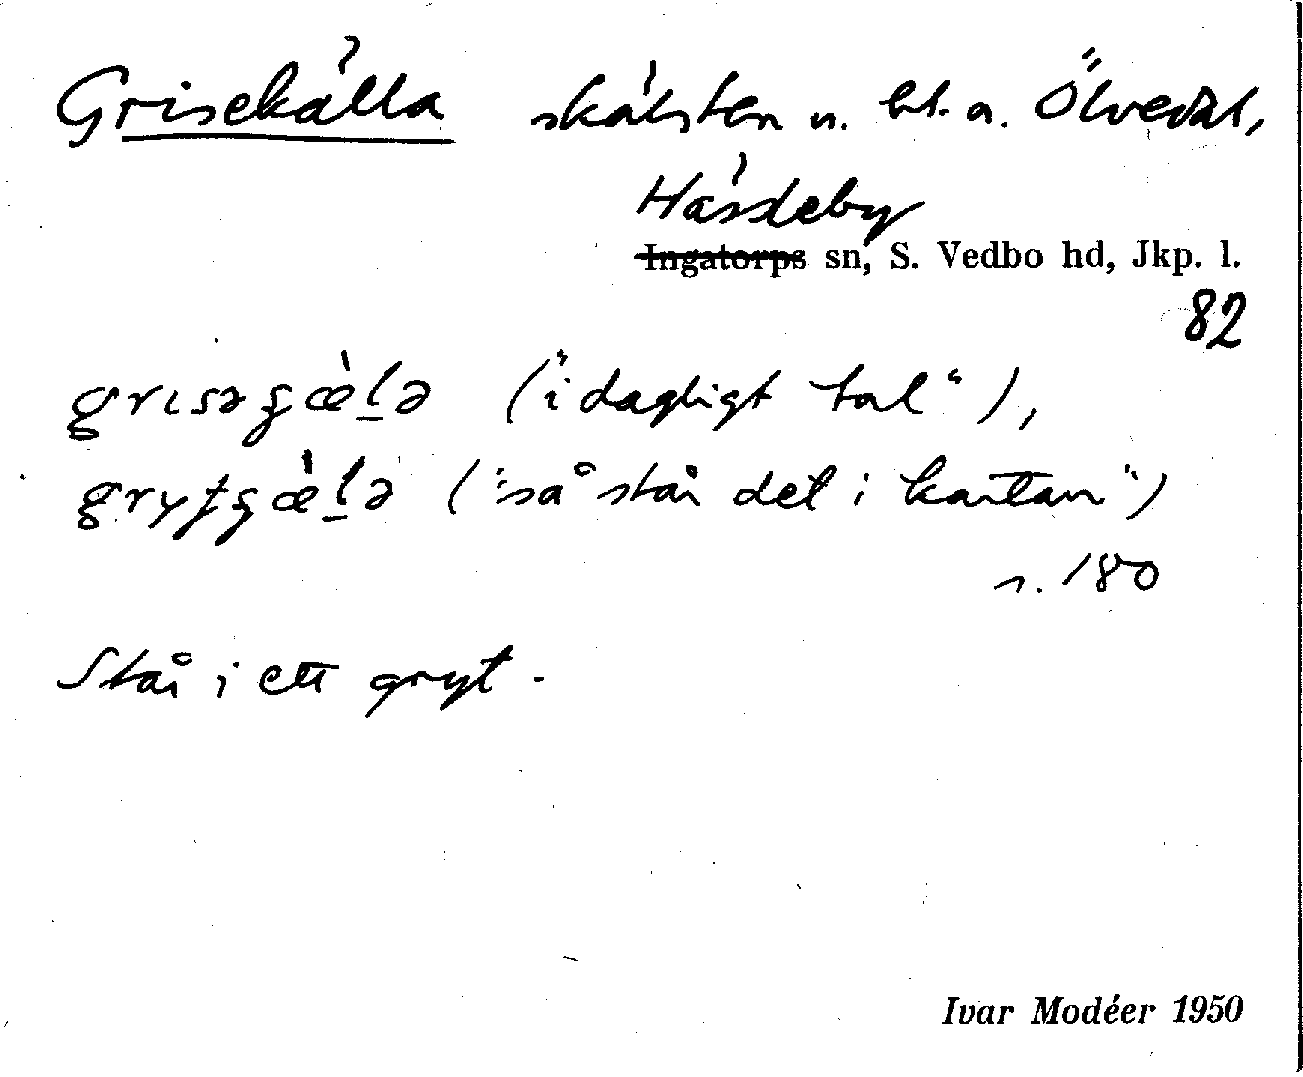 Grisekälla skälsten u. bl. a. Ölvedal,
Hässleby
Ingatorps sn, S. Vedbo hd, Jkp. l.
82
grɩsəʂæ̀lə ("i dagligt tal"),
grytʂæ̀lə ("så står det i kartan")
s. 180
Står i ett gryt.
Ivar Modéer 1950